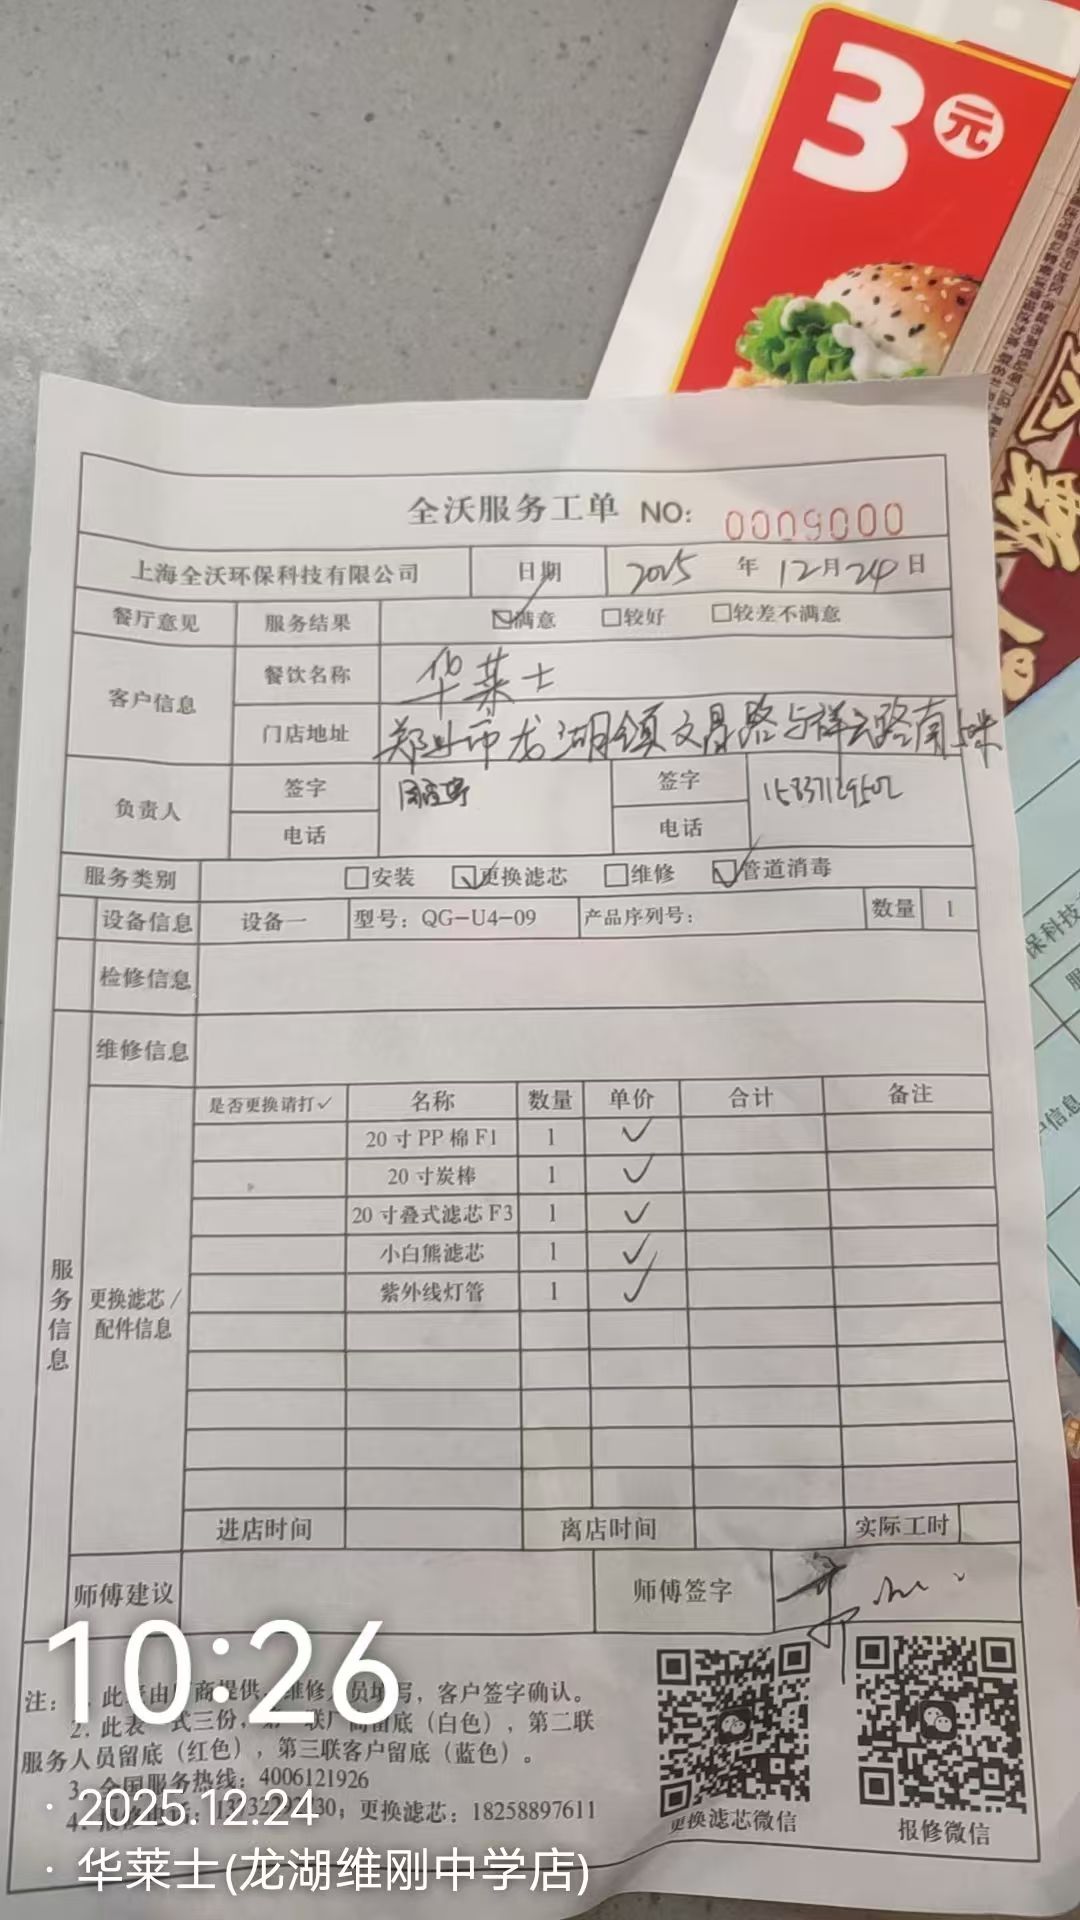 3元
全沃服务工单 NO: 0009000
上海全沃环保科技有限公司 日期 2025 年 12月24日
餐厅意见 服务结果 ☑满意 □较好 □较差不满意
客户信息 餐饮名称 华莱士
门店地址 郑州市龙湖镇文昌路与祥云路南
负责人 签字 签字
电话 电话 15837129502
服务类别 □安装 ☑更换滤芯 □维修 ☑管道消毒
设备信息 设备一 型号: QG-U4-09 产品序列号: 数量 1
检修信息
维修信息
服务信息
更换滤芯/配件信息
是否更换请打✓ 名称 数量 单价 合计 备注
20寸PP棉F1 1 ✓
20寸炭棒 1 ✓
20寸叠式滤芯F3 1 ✓
小白熊滤芯 1 ✓
紫外线灯管 1 ✓
进店时间 离店时间 实际工时
师傅建议 师傅签字
注:
写，客户签字确认。
2. 此表 式三份， 留底（白色），第二联
服务人员留底（红色），第三联客户留底（蓝色）。
3. 全国服务热线: 4006121926
4. 更换滤芯: 18258897611
更换滤芯微信 报修微信
10:26
· 2025.12.24
· 华莱士(龙湖维刚中学店)